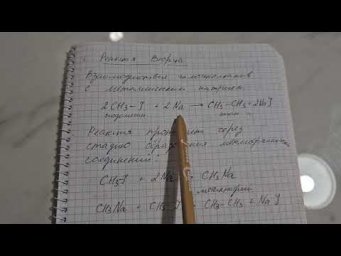 Реакция Вюрца
Взаимодействие галоалканов
с металлическим натрием
2CH₃-J + 2Na → CH₃-CH₃ + 2NaJ
иодметан этан
Реакция протекает через
стадию образования
соединений
CH₃J + 2Na J + CH₃Na
CH₃Na + CH₃ CH₃-CH₃ + NaJ